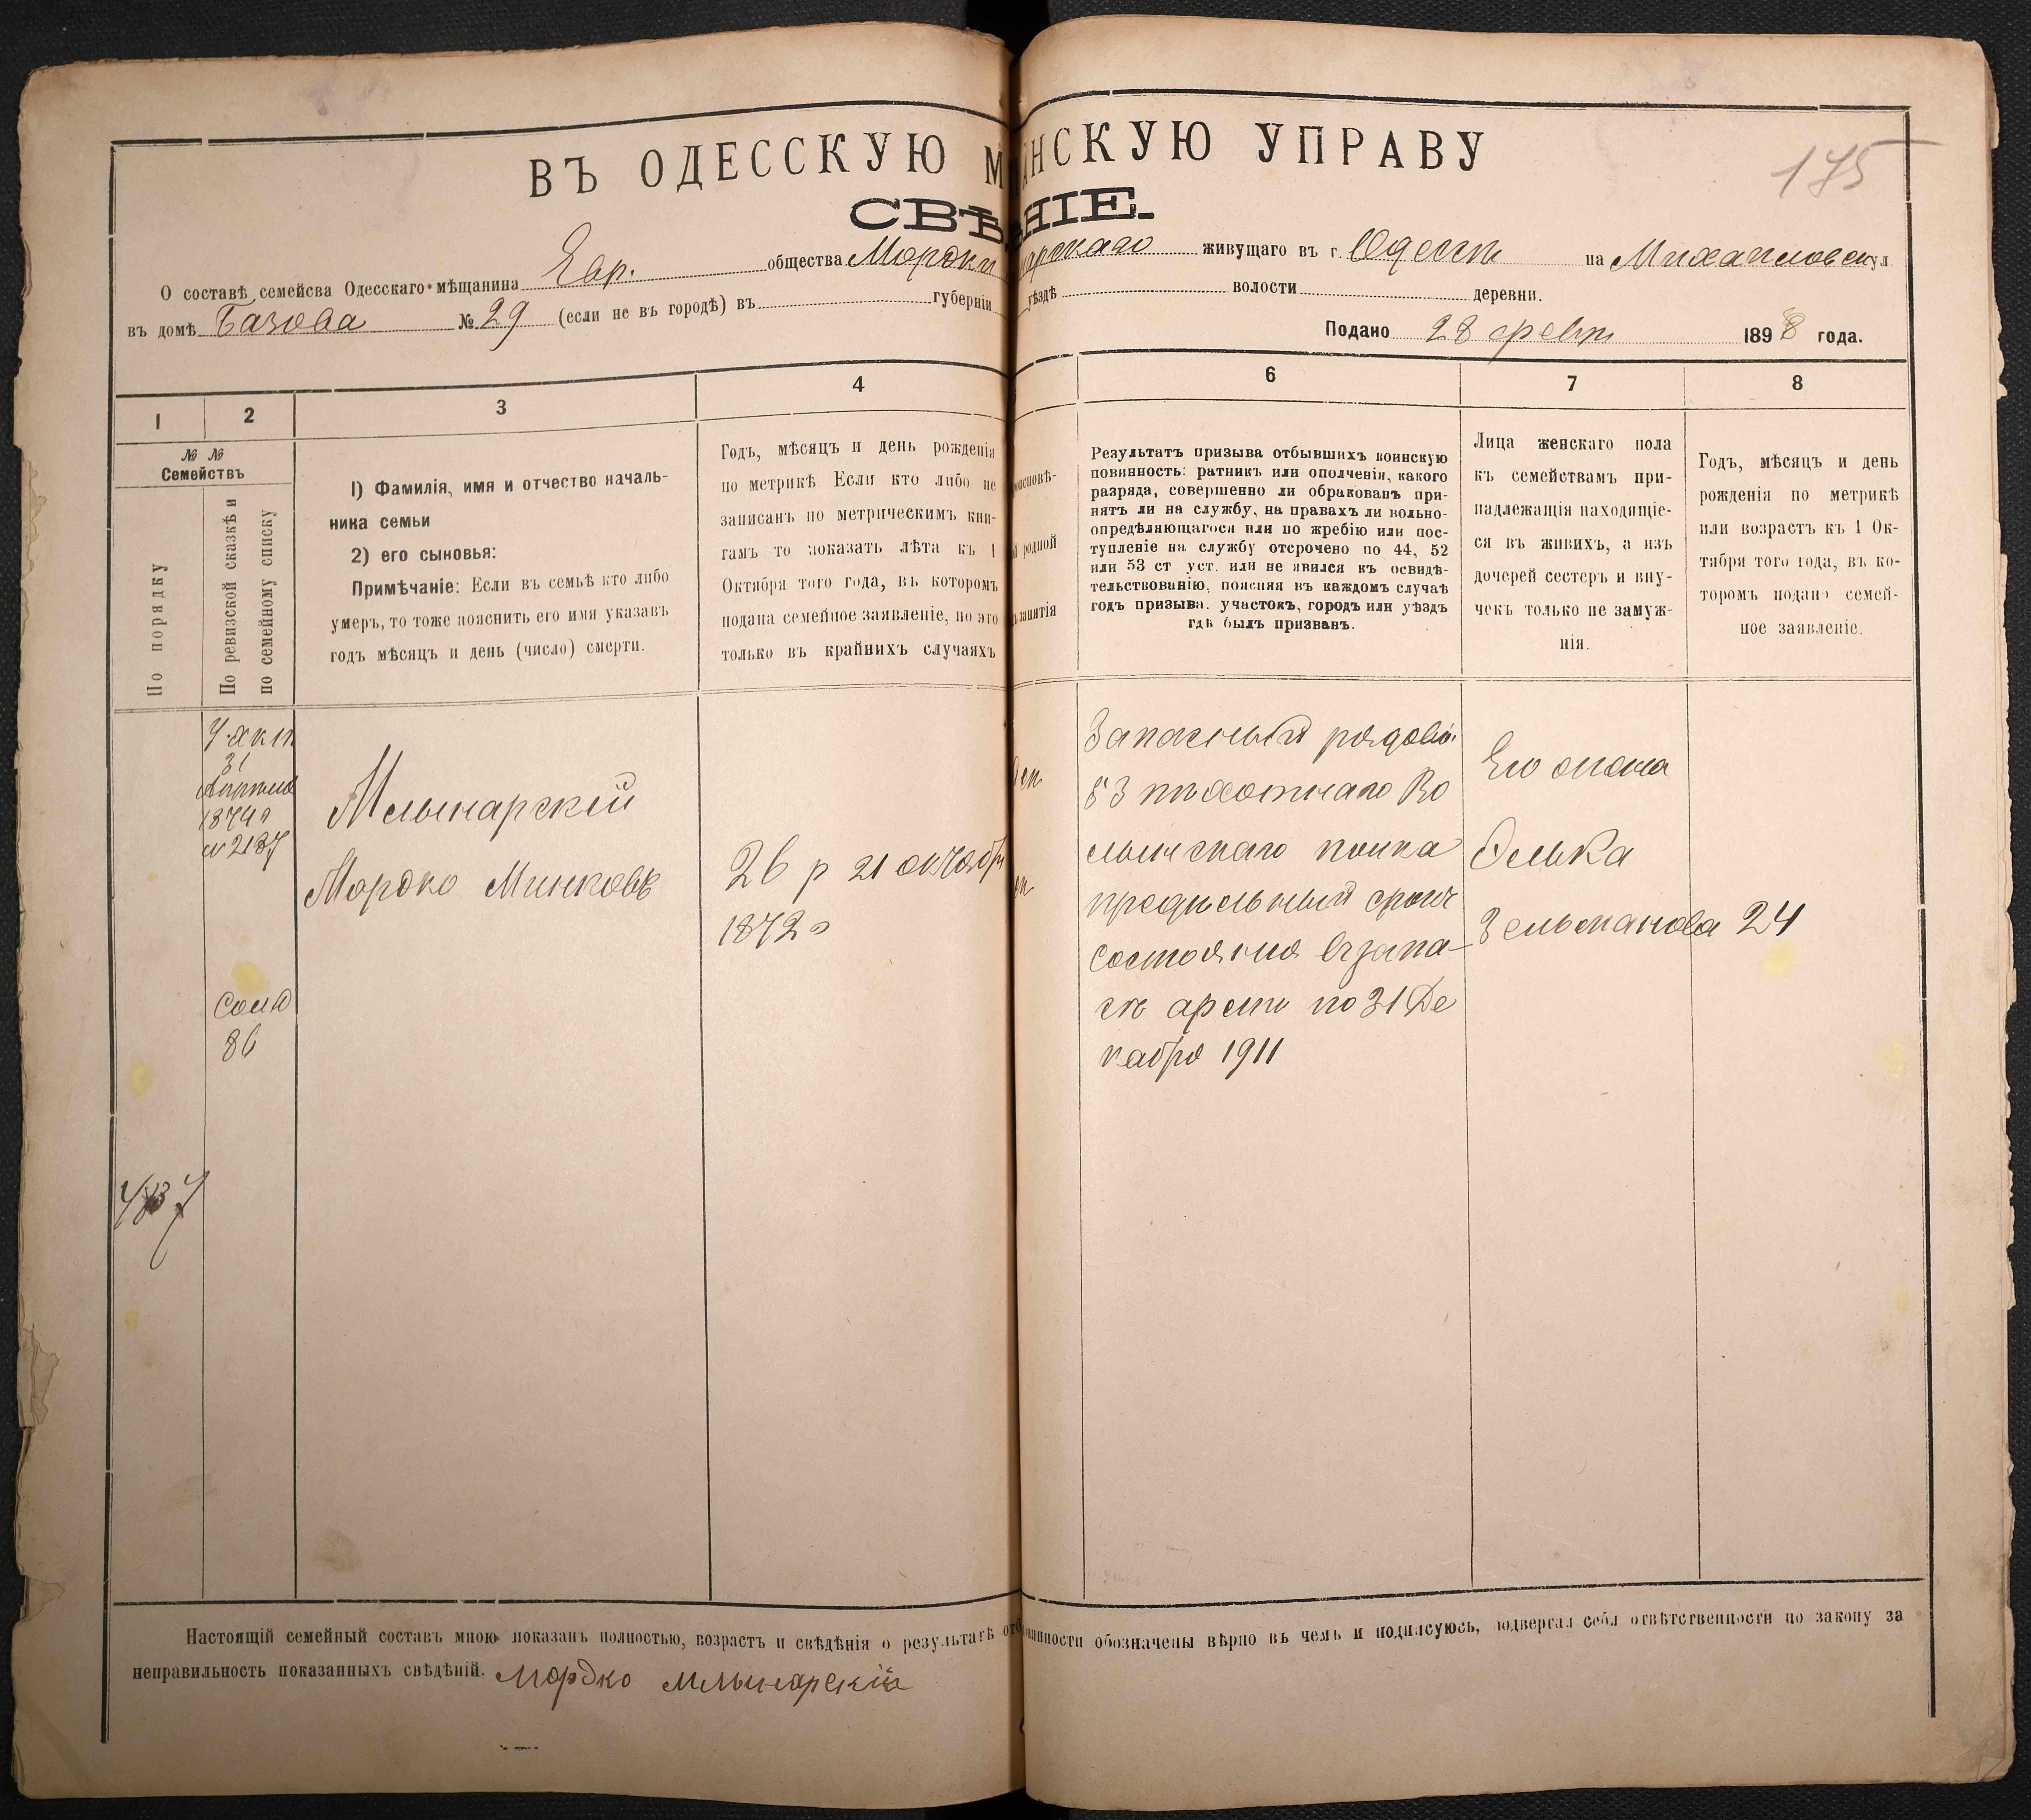 175
ВЪ ОДЕССКУЮ М АНСКУЮ УПРАВУ
СВѢ НІЕ.
О составѣ семейсва Одесскаго мѣщанина Евр. общества Мордки нарскаго живущаго въ г. Одессѣ на Михайловск ул
въ домѣ Базова № 29 (если не въ городѣ) въ губерніи уѣздѣ волости деревни.
Подано 28 февр 1898 года.
1 2 3 4 6 7 8
№ №
Семействъ
По порядку
По ревизской сказкѣ и
по семейному списку
1) Фамилія, имя и отчество началь-
ника семьи
2) его сыновья:
Примѣчаніе: Если въ семьѣ кто либо
умеръ, то тоже пояснить его имя указавъ
годъ мѣсяцъ и день (число) смерти.
Годъ, мѣсяцъ и день рожденія
по метрикѣ Если кто либо не
записанъ по метрическимъ кни-
гамъ то показать лѣта къ 1
Октября того года, въ которомъ
подана семейное заявленіе, но это
только въ крайнихъ случаяхъ
исповѣ-
родной
занятія
Результатъ призыва отбывшихъ воинскую
повинность: ратникъ или ополченія, какого
разряда, совершенно ли обракованъ при-
нятъ ли на службу, на правахъ ли вольно-
опредѣляющагося или по жребію или пос-
тупленіе на службу отсрочено по 44, 52
или 53 ст уст. или не явился къ освидѣ-
тельствованію, поясняя въ каждомъ случаѣ
годъ призыва. участокъ, городъ или уѣздъ
гдѣ былъ призванъ.
Лица женскаго пола
къ семействамъ при-
надлежащія находящіе-
ся въ живихъ, а изъ
дочерей сестеръ и вну-
чекъ только не замуж-
нія.
Годъ, мѣсяцъ и день
рожденія по метрикѣ
или возрастъ къ 1 Ок-
тября того года, въ ко-
торомъ подано семей-
ное заявленіе.
31
1874 г
№ 2187
86
Млынарскій
Мордко Минковъ
26 р 21 октября
1872 г
Запасный рядовой
53 пѣхотнаго Во
лынскаго полка
предѣльный срокъ
состоянія въ запа-
сѣ арміи по 31 Де
кабря 1911
Его жена
Элька
Зельманова 24
Настоящій семейный составъ мною показанъ полностью, возрастъ и свѣдѣнія о результатѣ отб винности обозначены вѣрно въ чемъ и подписуюсь, подвергая себя отвѣтственности по закону за
неправильность показанныхъ свѣдѣній. Мордко Млынарскій